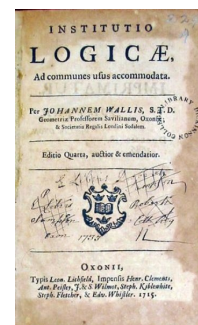 INSTITUTIO
LOGICÆ,
Ad communes usus accommodata.
Per JOHANNEM WALLIS, S.T.D.
Geometriæ Professorem Savilianum, Oxoniæ;
& Societatis Regalis Londini Sodalem.
LIBRARY
Editio Quarta, auctior & emendatior.
OXONII,
Typis Leon. Lichfield, Impensis Henr. Clements,
Ant. Peisley, J. & S. Wilmot, Steph. Kiblewhite,
Steph. Fletcher, & Edv. Whistler. 1715.